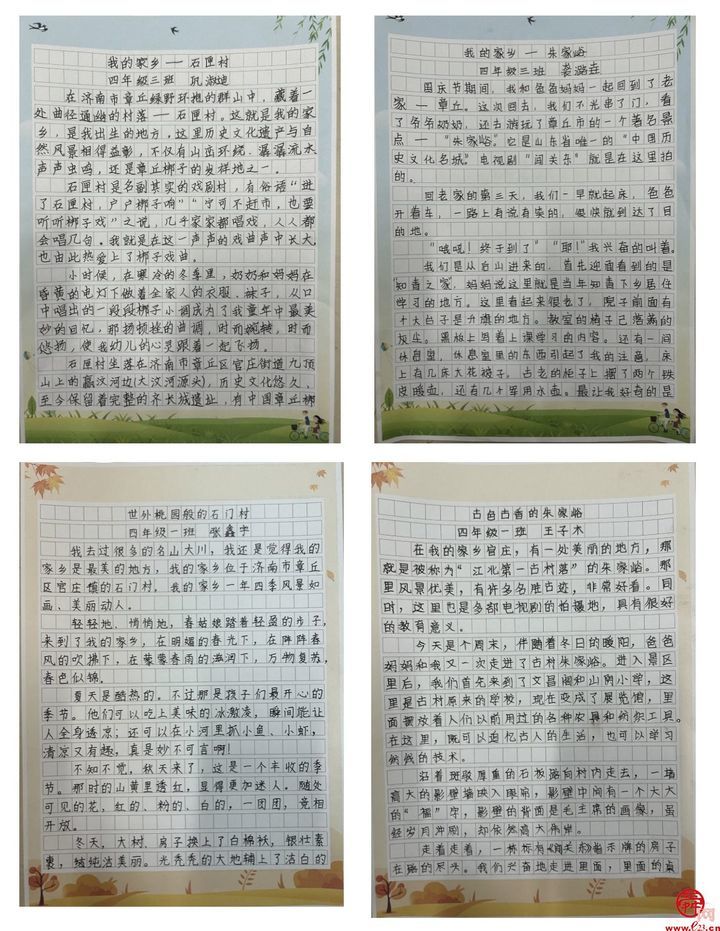 我的家乡——石匣村
四年级三班 巩淑迪
在济南市章丘绿野环抱的群山中，藏着一
处曲径通幽的村落——石匣村。这就是我的家
乡，是我出生的地方，这里历史文化遗产与自
然风景相得益彰，不仅有山峦环绕、潺潺流水
声声虫鸣，还是章丘梆子的发祥地之一。
石匣村是名副其实的戏剧村，有俗语“进
了石匣村，户户梆子响”“宁可不赶市，也要
听听梆子戏”之说，几乎家家都唱戏，人人都
会唱几句。我就是在这一声声的戏曲声中长大，
也由此热爱上了梆子戏曲。
小时候，在寒冷的冬季里，奶奶和妈妈在
昏黄的电灯下做着全家人的衣服、袜子，从口
中唱出的一段段梆子小调成为了我童年中最美
妙的回忆，那抑扬顿挫的曲调，时而婉转，时而
悠扬，使我幼儿的心灵跟着一起飞扬。
石匣村坐落在济南市章丘区官庄街道九顶
山上的嬴汶河边（大汶河源头），历史文化悠久，
至今保留着完整的齐长城遗址，有中国章丘梆
我的家乡——朱家峪
四年级三班 娄潞垚
国庆节期间，我和爸爸妈妈一起回到了老
家——章丘。这次回去，我们不光串了门，看
了爷爷奶奶，还去游玩了章丘市的一个著名景
点——“朱家峪”。它是山东省唯一的“中国历
史文化名城”。电视剧“闯关东”就是在这里拍
的。
回老家的第三天，我们一早就起床，爸爸
开着车，一路上有说有笑的，很快就到达了目
的地。
“哦吼！终于到了”“耶！”我兴奋的叫着。
我们是从后山进来的，首先迎面看到的是
“知青之家”，妈妈说这里就是当年知青下乡居住
学习的地方。这里看起来很老了，院子前面有
个大台子是升旗的地方。教室的椅子已落满的
灰尘。黑板上写着上课学习的内容。还有一间
休息室，休息室里的东西引起了我的注意，床
上有几床大花被子。古老的柜子上摆了两个铁
皮暖壶，还有几个军用水壶。最让我好奇的是
世外桃园般的石门村
四年级一班 张鑫宇
我去过很多的名山大川，我还是觉得我的
家乡是最美的地方，我的家乡位于济南市章丘
区官庄镇的石门村。我的家乡一年四季风景如
画、美丽动人。
轻轻地、悄悄地，春姑娘踏着轻盈的步子，
来到了我的家乡，在明媚的春光下，在阵阵春
风的吹拂下，在蒙蒙春雨的滋润下，万物复苏，
春色似锦。
夏天是酷热的。不过那是孩子们最开心的
季节。他们可以吃上美味的冰激凌，瞬间能让
人全身透凉；还可以在小河里抓小鱼、小虾，
清凉又有趣，真是妙不可言啊！
不知不觉，秋天来了，这是一个丰收的季
节。那时的山黄里透红，显得更加迷人。随处
可见的花，红的、粉的、白的，一团团，竞相
开放。
冬天，大树、房子换上了白棉袄，银妆素
裹，纯洁美丽。光秃秃的大地铺上了洁白的
古色古香的朱家峪
四年级一班 王子木
在我的家乡官庄，有一处美丽的地方，那
就是被称为“江北第一古村落”的朱家峪。那
里风景优美，有许多名胜古迹，非常好看。同
时，这里也是多部电视剧的拍摄地，具有很好
的教育意义。
今天是个周末，伴随着冬日的暖阳，爸爸
妈妈和我又一次走进了古村朱家峪。进入景区
里后，我们首先来到了文昌阁和山阴小学，这
里是古村原来的学校，现在变成了展览馆，里
面摆放着人们以前用过的各种农具和纺织工具。
在这里，既可以追忆古人的生活，也可以学习
传统的技术。
沿着斑驳厚重的石板路向村内走去，一堵
高大的影壁墙映入眼帘，影壁中间有一个大大
的“福”字，影壁的背面是毛主席的画像，虽
经岁月冲刷，却依然高大伟岸。
走着走着，一块标有《闯关东》指示牌的房子
在路的尽头。我们兴奋地走进里面，里面的桌
www.e23.cn